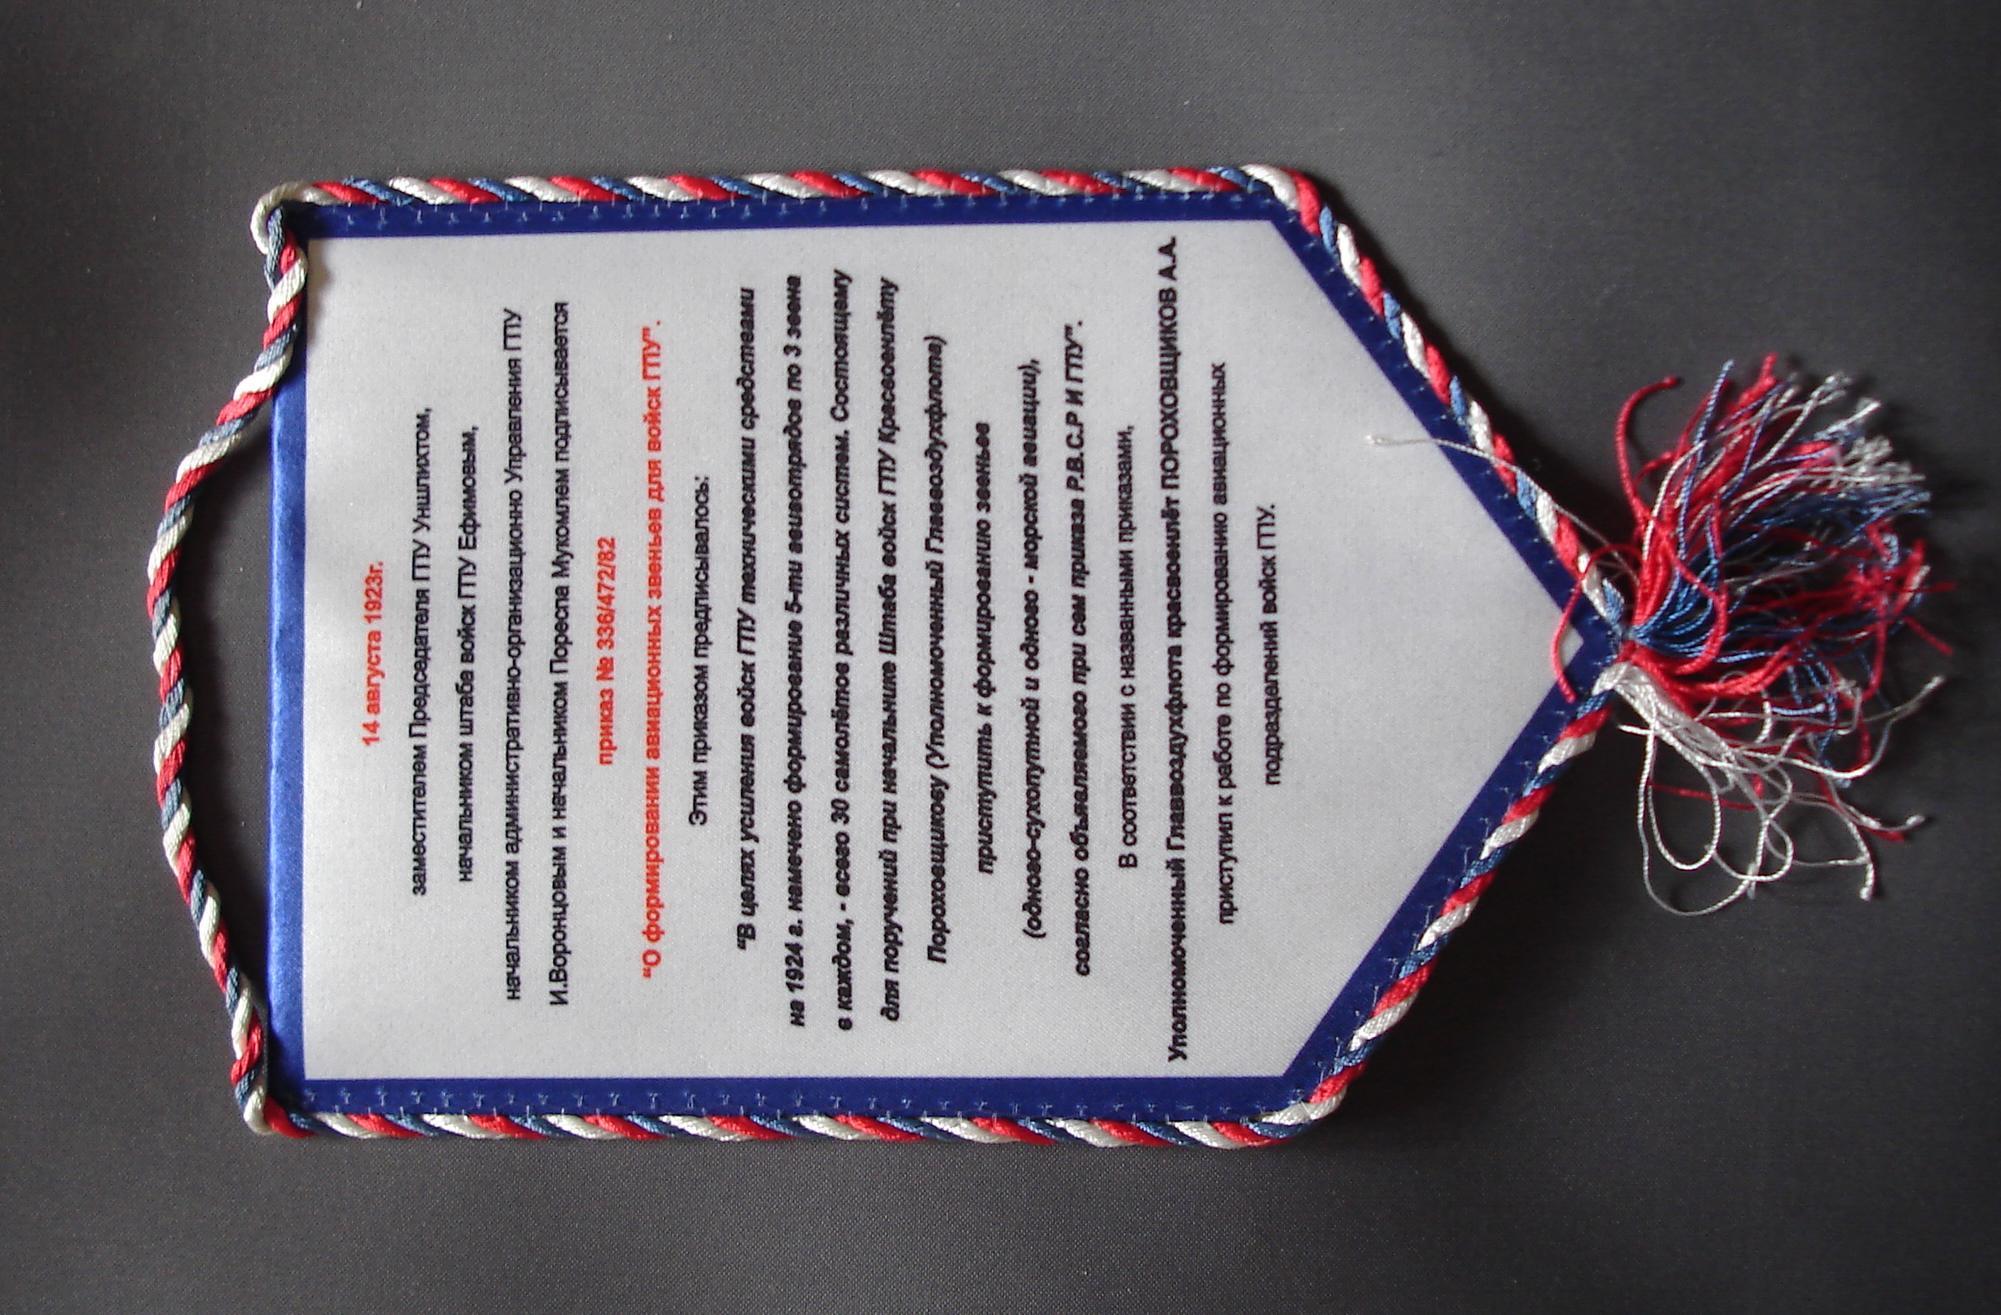 14 августа 1923г.
заместителем Председателя ГПУ Уншлихтом,
начальником штаба войск ГПУ Ефимовым,
начальником административно-организационно Управления ГПУ
И.Воронцовым и начальником Пореспа Мукомлем подписывается
приказ № 336/472/82
"О формировании авиационных звеньев для войск ГПУ".
Этим приказом предписывалось:
"В целях усиления войск ГПУ техническими средствами
на 1924 г. намечено формирование 5-ти авиотрядов по 3 звена
в каждом, - всего 30 самолётов различных систем. Состоящему
для поручений при начальнике Штаба войск ГПУ Красвоенлёту
Пороховщикову (Уполномоченный Главвоздухфлота)
приступить к формированию звеньев
(одново-сухопутной и одново - морской авиации),
согласно объявляемого при сем приказа Р.В.С.Р И ГПУ".
В соответствии с названными приказами,
Уполномоченный Главвоздухфлота красвоенлёт ПОРОХОВЩИКОВ А.А.
приступил к работе по формированию авиационных
подразделений войск ГПУ.